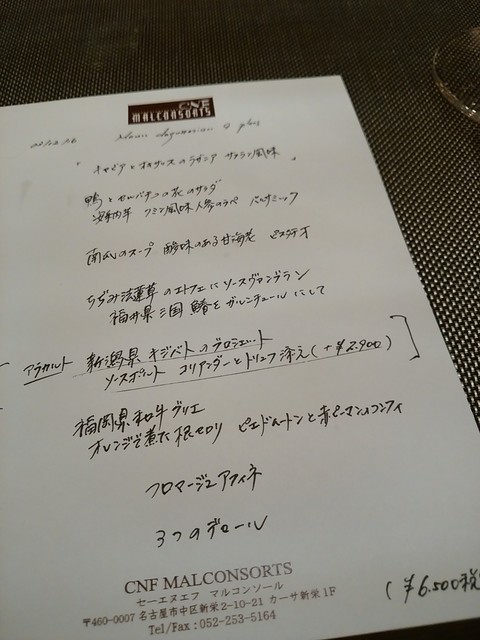 CNF
MALCONSORTS
Menu dégustation 9 plats
「キャビアと
サフラン風味」
鴨とセルバチコの花のサラダ
安納芋 クミン風味 人参のラペ バルサミック
南瓜のスープ 酸味のある甘海老 ピスタチオ
ちぢみ法蓮草のエトフェにソースヴァンブラン
福井県三国 鰆をガルニチュールにして
アラカルト 新潟県 キジバトのブロシェット
ソースポルト コリアンダーとトリュフ添え(+¥2,900)
福岡県和牛グリエ
オレンジで煮た根セロリ ピエドムートンと赤ピーマンのコンフィ
フロマージュアフィネ
3つのデセール
CNF MALCONSORTS
セーエヌエフ マルコンソール
〒460-0007 名古屋市中区新栄2-10-21 カーサ新栄1F
Tel/Fax : 052-253-5164
(¥6,500税